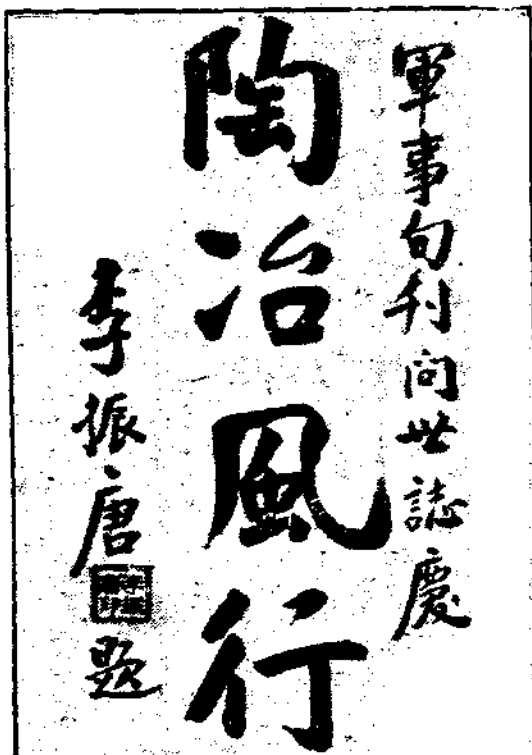 軍事旬刊問世誌慶
陶冶風行
李振唐題